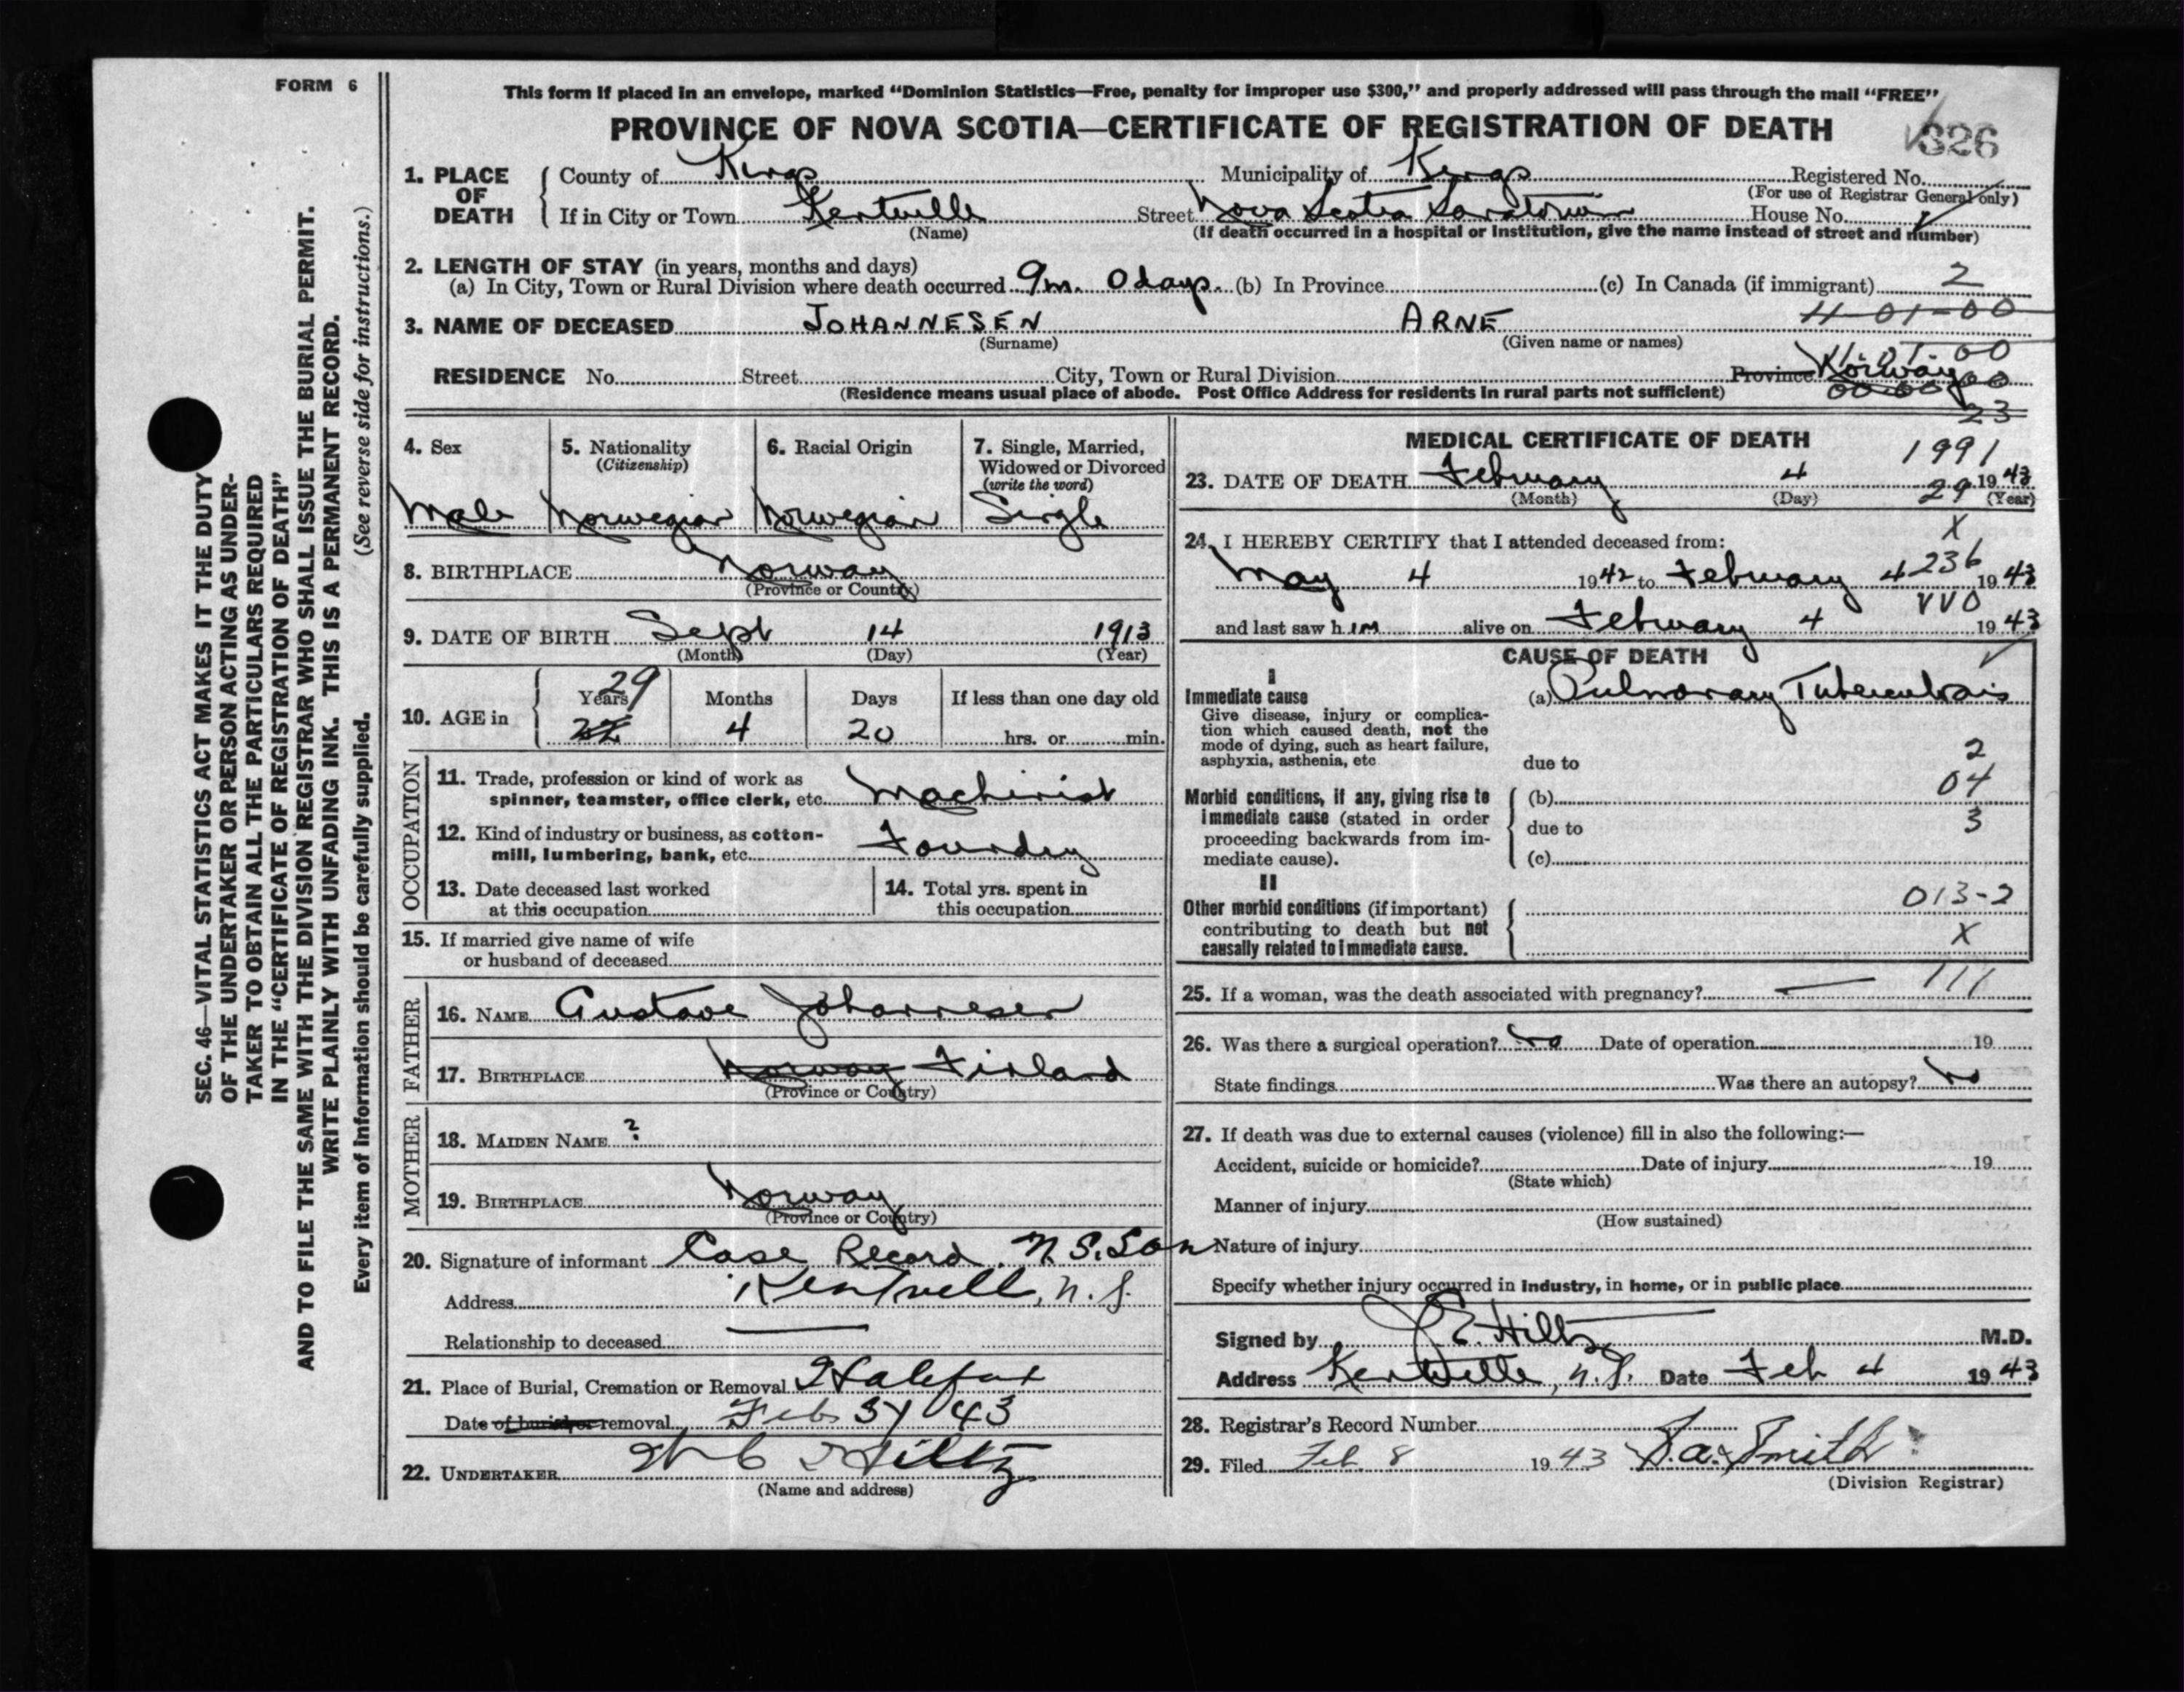 FORM 6
This form if placed in an envelope, marked “Dominion Statistics—Free, penalty for improper use $300,” and properly addressed will pass through the mail “FREE”
PROVINCE OF NOVA SCOTIA—CERTIFICATE OF REGISTRATION OF DEATH 326
1. PLACE OF DEATH County of Kings Municipality of Kings Registered No.
(For use of Registrar General only)
If in City or Town Kentville Street Nova Scotia Sanatorium House No.
(Name) (If death occurred in a hospital or institution, give the name instead of street and number)
2. LENGTH OF STAY (in years, months and days)
(a) In City, Town or Rural Division where death occurred 9m. 0 days. (b) In Province (c) In Canada (if immigrant) 2
3. NAME OF DECEASED JOHANNESEN ARNE 11-01-00
(Surname) (Given name or names)
RESIDENCE No. Street City, Town or Rural Division Province Norway
(Residence means usual place of abode. Post Office Address for residents in rural parts not sufficient) 00-00-00
23
4. Sex 5. Nationality (Citizenship) 6. Racial Origin 7. Single, Married, Widowed or Divorced (write the word)
Male Norwegian Norwegian Single
8. BIRTHPLACE Norway
(Province or Country)
9. DATE OF BIRTH Sept 14 1913
(Month) (Day) (Year)
10. AGE in Years Months Days If less than one day old
29
22 4 20 hrs. or min.
OCCUPATION
11. Trade, profession or kind of work as spinner, teamster, office clerk, etc. Machinist
12. Kind of industry or business, as cotton-mill, lumbering, bank, etc. Foundry
13. Date deceased last worked at this occupation
14. Total yrs. spent in this occupation
15. If married give name of wife or husband of deceased
FATHER
16. NAME Gustave Johannesen
17. BIRTHPLACE Norway Finland
(Province or Country)
MOTHER
18. MAIDEN NAME ?
19. BIRTHPLACE Norway
(Province or Country)
20. Signature of informant Case Record. N.S. San
Address Kentville, N.S.
Relationship to deceased
21. Place of Burial, Cremation or Removal Halifax
Date of burial or removal Feb 5/43
22. UNDERTAKER Hiltz
(Name and address)
MEDICAL CERTIFICATE OF DEATH
1991
23. DATE OF DEATH February 4 1943
(Month) (Day) 29 (Year)
X
24. I HEREBY CERTIFY that I attended deceased from:
236
May 4 1942 to February 4 1943
VVO
and last saw him alive on February 4 1943
CAUSE OF DEATH
I
Immediate cause (a) Pulmonary Tuberculosis
Give disease, injury or complication which caused death, not the mode of dying, such as heart failure, asphyxia, asthenia, etc
due to 2
04
Morbid conditions, if any, giving rise to immediate cause (stated in order proceeding backwards from immediate cause).
(b)
due to 3
(c)
II
Other morbid conditions (if important) contributing to death but not causally related to immediate cause.
013-2
X
111
25. If a woman, was the death associated with pregnancy? —
26. Was there a surgical operation? no Date of operation 19
State findings Was there an autopsy? no
27. If death was due to external causes (violence) fill in also the following:—
Accident, suicide or homicide? Date of injury 19
(State which)
Manner of injury
(How sustained)
Nature of injury
Specify whether injury occurred in industry, in home, or in public place
Signed by J.E. Hiltz M.D.
Address Kentville, N.S. Date Feb 4 1943
28. Registrar's Record Number
29. Filed Feb. 8 1943 Smith
(Division Registrar)
SEC. 46—VITAL STATISTICS ACT MAKES IT THE DUTY
OF THE UNDERTAKER OR PERSON ACTING AS UNDER-
TAKER TO OBTAIN ALL THE PARTICULARS REQUIRED
IN THE “CERTIFICATE OF REGISTRATION OF DEATH”
AND TO FILE THE SAME WITH THE DIVISION REGISTRAR WHO SHALL ISSUE THE BURIAL PERMIT.
WRITE PLAINLY WITH UNFADING INK. THIS IS A PERMANENT RECORD.
Every item of information should be carefully supplied. (See reverse side for instructions.)